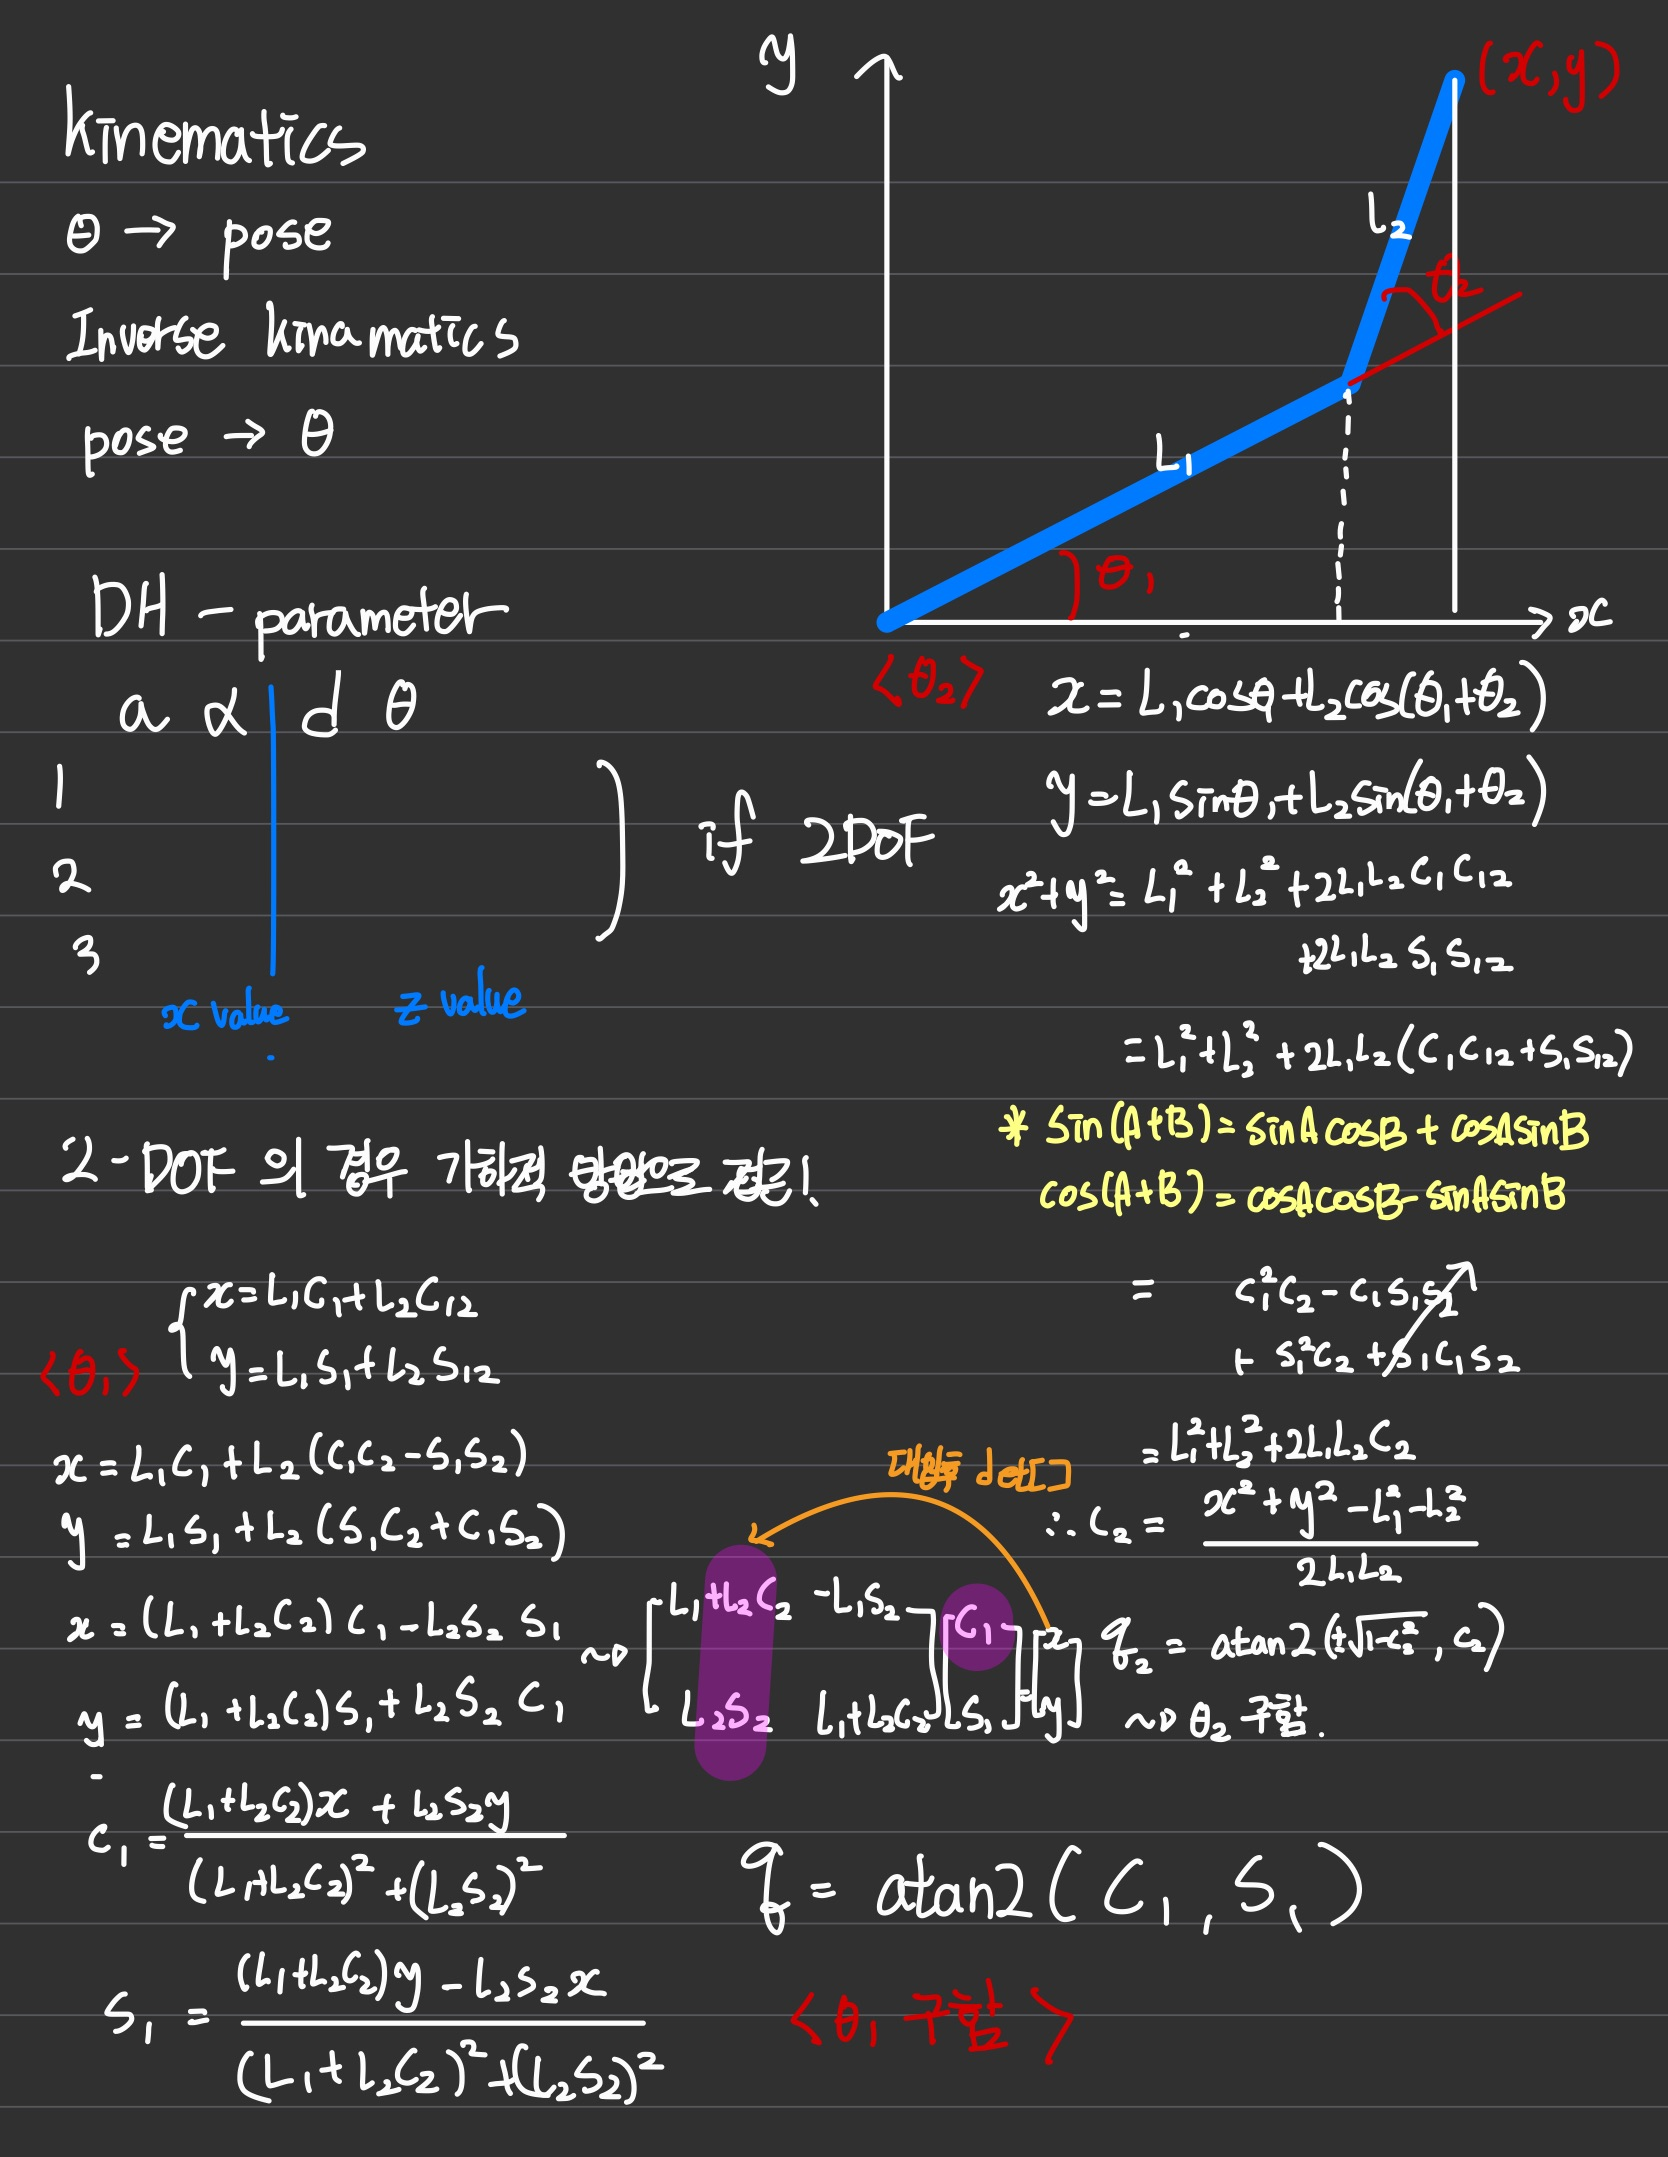 kinematics
θ → pose
Inverse kinamatics
pose → θ
DH - parameter
a α d θ
1
2
3
if 2DOF
x value
z value
y
(x,y)
L₂
θ₂
L₁
θ₁
x
<θ₂>
x = L₁cosθ₁+L₂cos(θ₁+θ₂)
y = L₁sinθ₁+L₂sin(θ₁+θ₂)
x²+y² = L₁² + L₂² + 2L₁L₂ C₁ C₁₂
+2L₁L₂ S₁ S₁₂
= L₁²+L₂² + 2L₁L₂ (C₁C₁₂+S₁S₁₂)
* sin(A+B) = sinAcosB + cosAsinB
cos(A+B) = cosAcosB - sinAsinB
= C₁²C₂ - C₁S₁S₂
+ S₁²C₂ + S₁C₁S₂
= L₁²+L₂²+2L₁L₂C₂
∴ C₂ = (x²+y²-L₁²-L₂²) / 2L₁L₂
q₂ = atan2(±√1-C₂², C₂)
~> θ₂ 구함.
2-DOF 의 경우 기하적 방법으로 접근!
<θ₁>
{ x = L₁C₁+L₂C₁₂
y = L₁S₁+L₂S₁₂
x = L₁C₁ + L₂ (C₁C₂-S₁S₂)
y = L₁S₁ + L₂ (S₁C₂+C₁S₂)
x = (L₁+L₂C₂) C₁ - L₂S₂ S₁
y = (L₁+L₂C₂)S₁ + L₂S₂ C₁
대입후 det[]
~> [L₁+L₂C₂ -L₁S₂] [C₁] = [x]
[L₂S₂ L₁+L₂C₂] [S₁] [y]
C₁ = ((L₁+L₂C₂)x + L₂S₂y) / ((L₁+L₂C₂)²+(L₂S₂)²)
S₁ = ((L₁+L₂C₂)y - L₂S₂x) / ((L₁+L₂C₂)²+(L₂S₂)²)
q = atan2(C₁, S₁)
<θ₁ 구함>